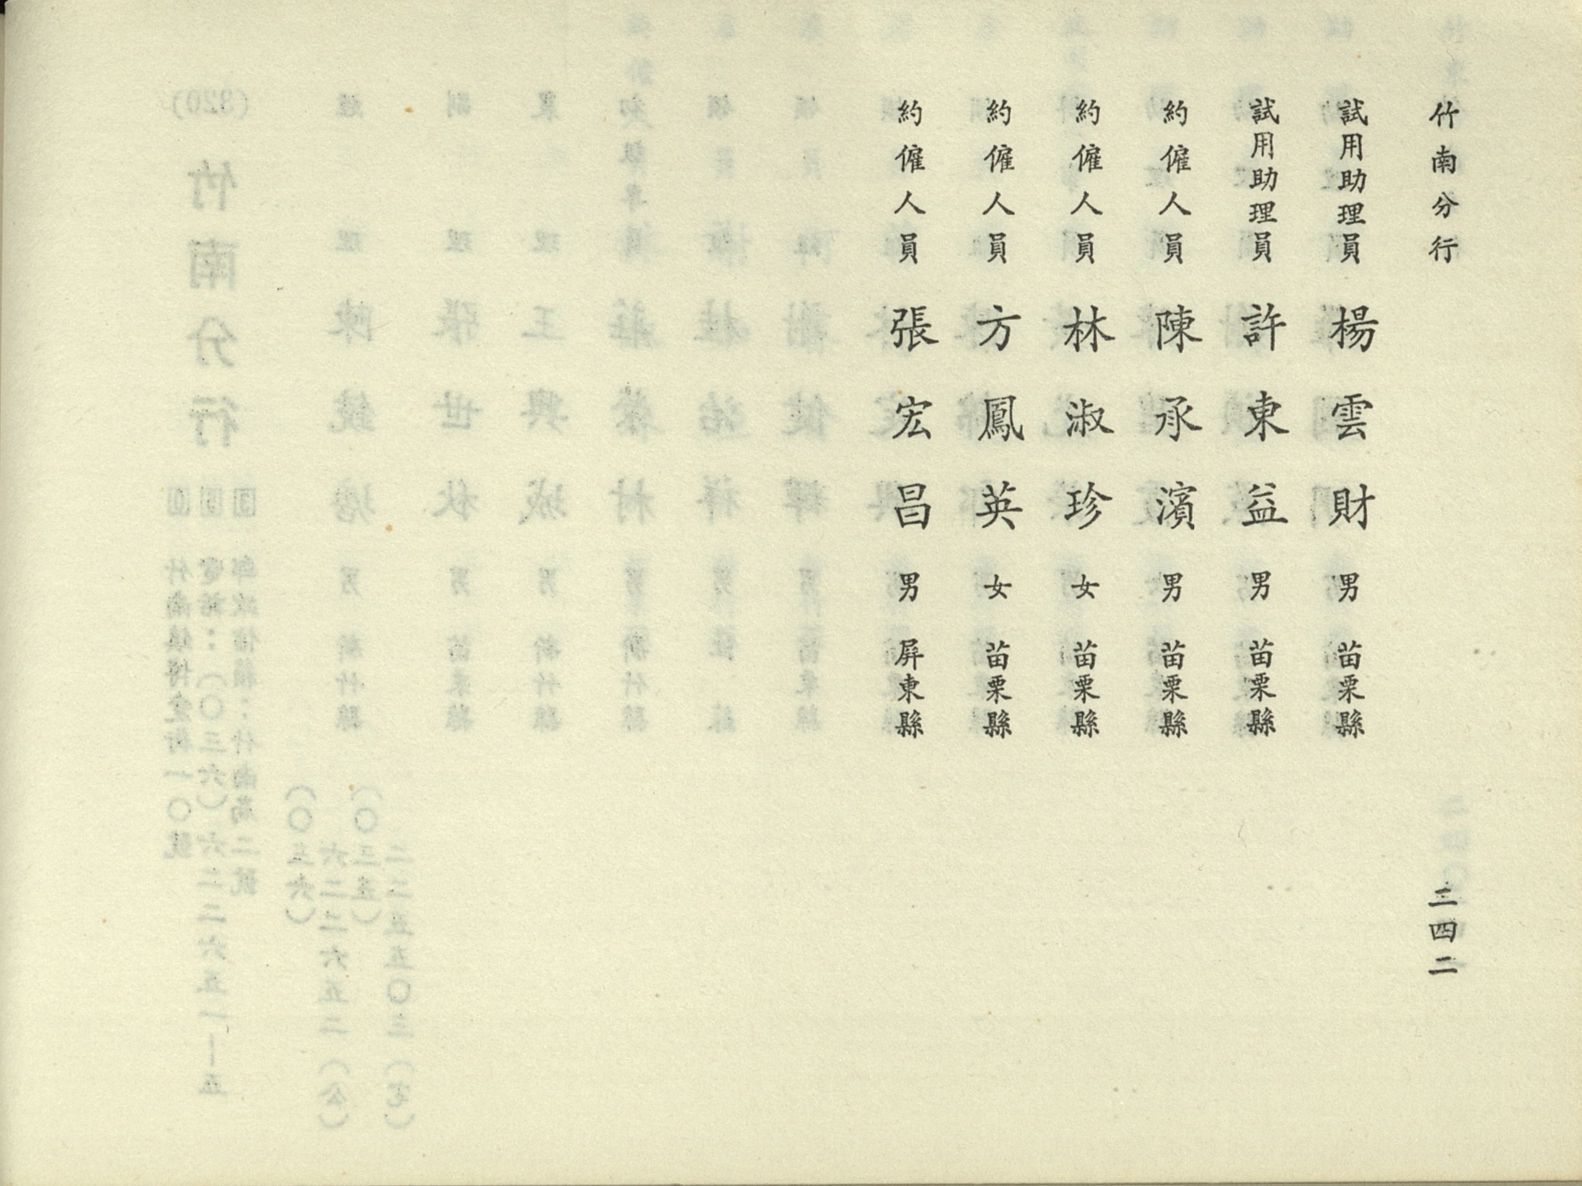 竹南分行
試用助理員 楊雲財 男 苗栗縣
試用助理員 許東益 男 苗栗縣
約僱人員 陳承濱 男 苗栗縣
約僱人員 林淑珍 女 苗栗縣
約僱人員 方鳳英 女 苗栗縣
約僱人員 張宏昌 男 屏東縣
三四二